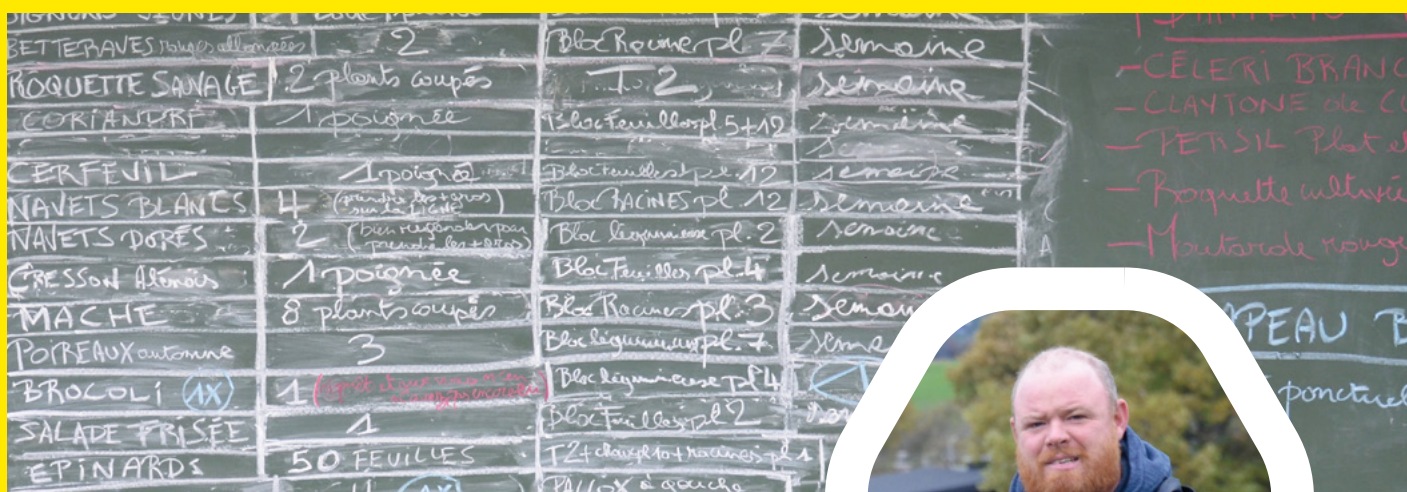 BETTERAVES rouges allongées 2 Bloc Racine pl 7 semaine
ROQUETTE SAUVAGE 2 plants coupés T 2 semaine
CORIANDRE 1 poignée Bloc Feuilles pl. 5+12 semaine
CERFEUIL 1 poignée Bloc Feuilles pl. 12 semaine
NAVETS BLANCS 4 (prendre les + gros sur la LIGNE) Bloc RACINES pl. 12 semaine
NAVETS DORÉS 2 (bien regarder pour prendre les + gros) Bloc légumineuse pl. 2 semaine
CRESSON Alénois 1 poignée Bloc Feuilles pl. 4 semaine
MACHE 8 plants coupés Bloc Racines pl. 3 semaine
POIREAUX automne 3 Bloc légumineuse pl. 7
BROCOLI 1X 1 Bloc légumineuse pl 4
SALADE FRISÉE 1 Bloc Feuilles pl 2
EPINARDS 50 FEUILLES T2+ + racines pl 1
PALLOX à gauche
- CÉLERI BRANC
- CLAYTONE de C
- PERSIL Plat et
- Roquette cultivée
- Moutarde rouge
APEAU B
ponctuel